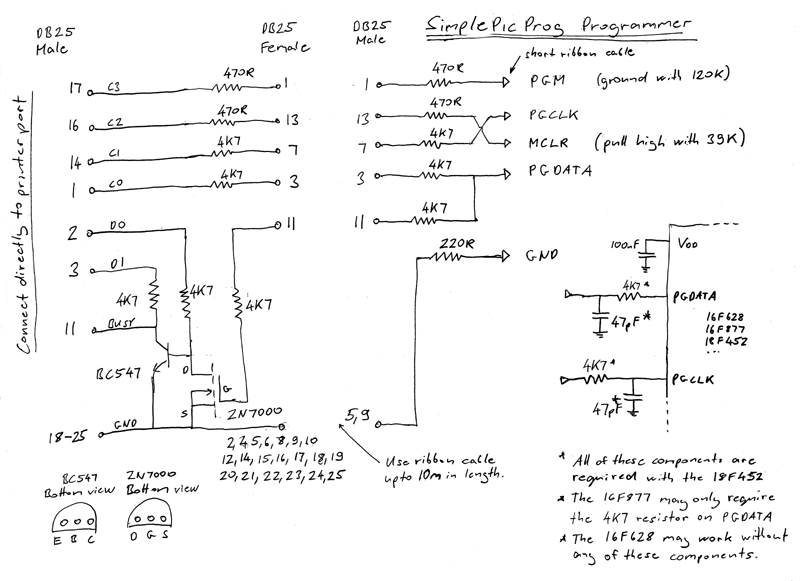 SimplePicProg Programmer
DB25
Male
DB25
Female
DB25
Male
short ribbon cable
Connect directly to printer port
17 C3 470R 1
16 C2 470R 13
14 C1 4K7 7
1 C0 4K7 3
2 D0 11
3 D1
4K7 4K7 4K7
11 BUSY
BC547
D
G
S
2N7000
18-25 GND
2,4,5,6,8,9,10
12,14,15,16,17,18,19
20,21,22,23,24,25
1 470R PGM (ground with 120K)
13 470R PGCLK
7 4K7 MCLR (pull high with 39K)
3 4K7 PGDATA
11 4K7
220R GND
5,9
Use ribbon cable
upto 10m in length.
100nF VDD
4K7* PGDATA
47pF*
16F628
16F877
18F452
...
4K7* PGCLK
47pF*
BC547
Bottom view
E B C
2N7000
Bottom view
D G S
* All of these components are
required with the 18F452
* The 16F877 may only require
the 4K7 resistor on PGDATA
* The 16F628 may work without
any of these components.